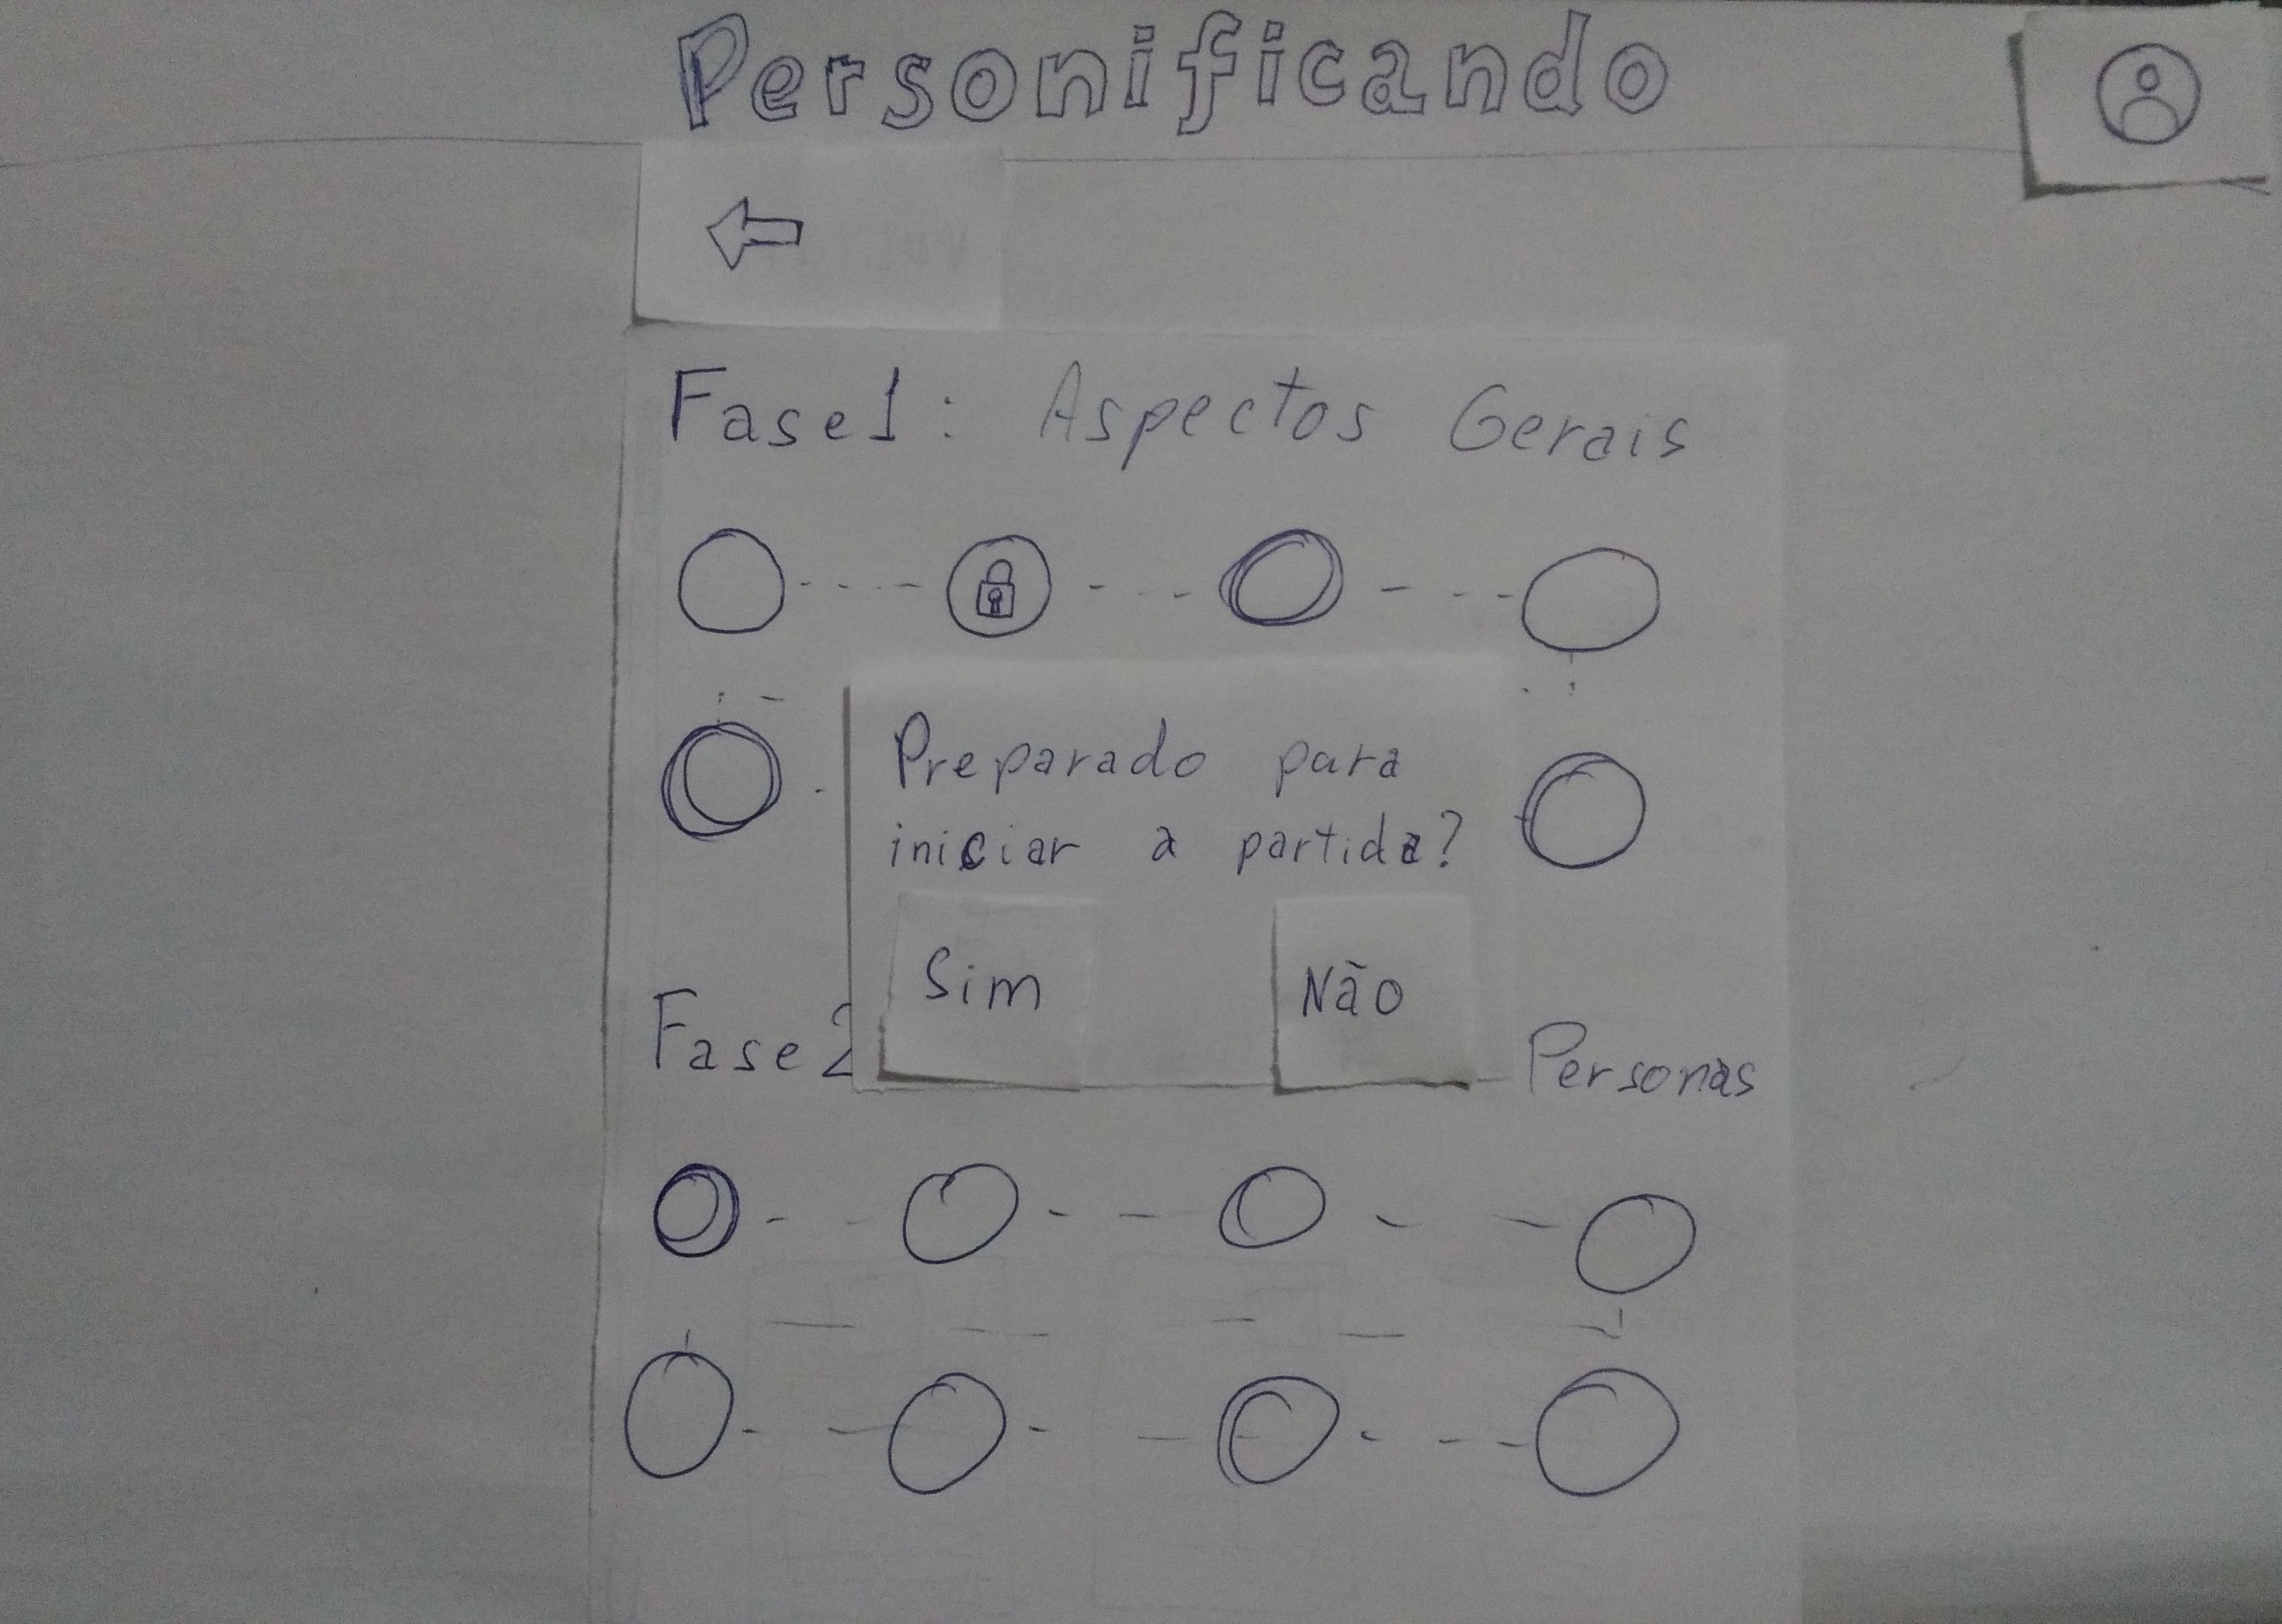 Personificando
Fase 1: Aspectos Gerais
Preparado para
iniciar a partida?
Sim Não
Fase 2 Personas